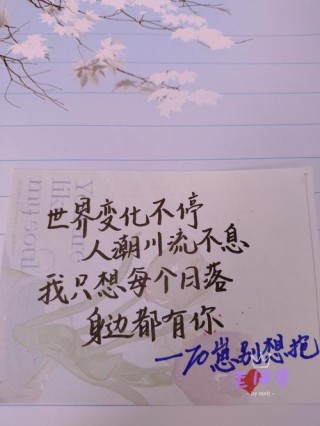 世界变化不停
人潮川流不息
我只想每个日落
身边都有你
别想抱